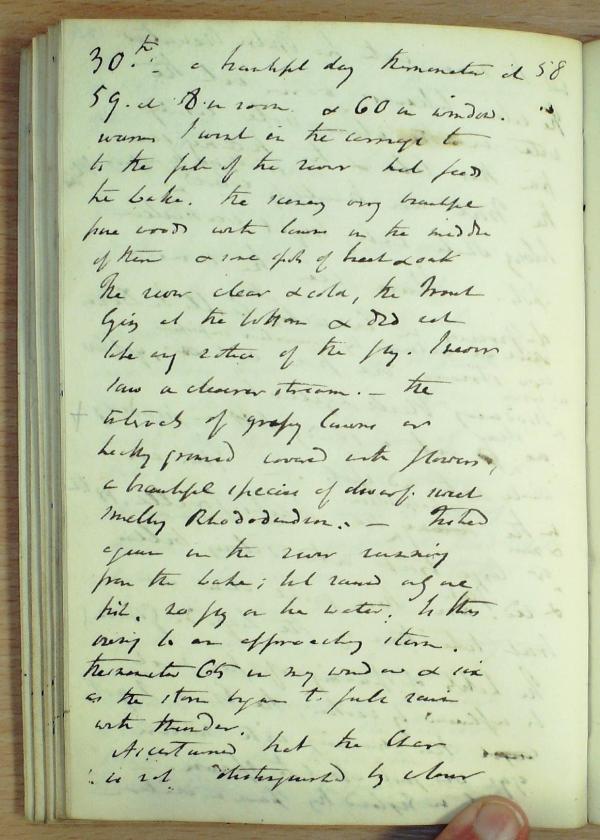 30.th a beautiful day thermometer at 58
59. at 8 in room & 60 in window.
I went in the carriage to
to the of the river that feeds
the Lake. the scenery very beautiful
pine woods with lawns in the middle
of them & some of beech & oak
The river clear & cold, the Trout
lying at the bottom & did not
take any notice of the fly. I never
saw a clearer stream. – the
intervals of grassy lawns or
heathy ground covered with flowers,
a beautiful species of dwarf sweet
smelling Rhododendron. – fished
again in the river running
from the Lake; but raised only one
fish. no fly on the water. Is this
owing to an approaching storm.
thermometer 65 in my window at six
as the storm began to rain
with thunder.
Ascertained that the Char
is not distinguished by colour